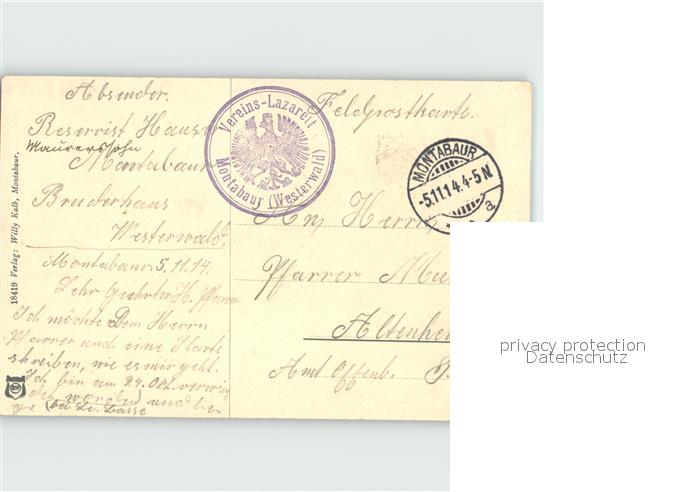 Absender.
Reservist Hans
Maurerssohn
Montabaur
Bruderhaus
Westerwald,
Montabaur, 5.11.14.
Sehr Geehrter H. Pfarrer
Ich möchte Dem Herrn
Pfarrer auch eine Karte
schreiben, wie es mir geht.
Ich bin am 24. Okt. verwun-
det worden und lie-
ge (bei La Basse
18419 Verlag: Willy Kalb, Montabaur.
Vereins-Lazarett
Montabaur (Westerwald)
Feldpostkarte.
MONTABAUR
-5.11.14.4-5N
a
An Herrn
Pfarrer
Altenhei
Amt Offenb.
privacy protection
Datenschutz